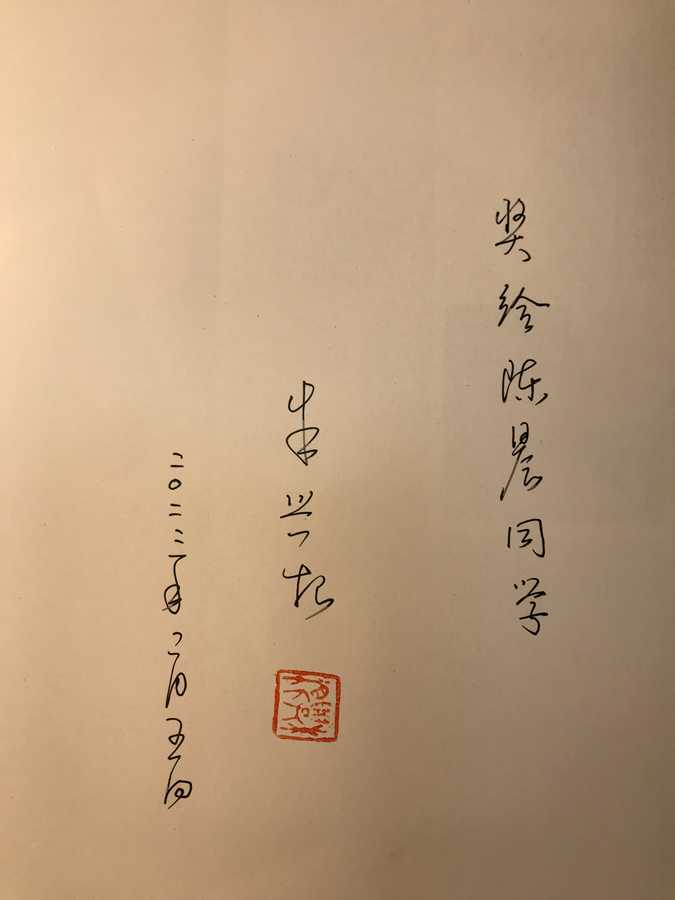 奖给陈晨同学
朱兴根
二〇二二年二月五日